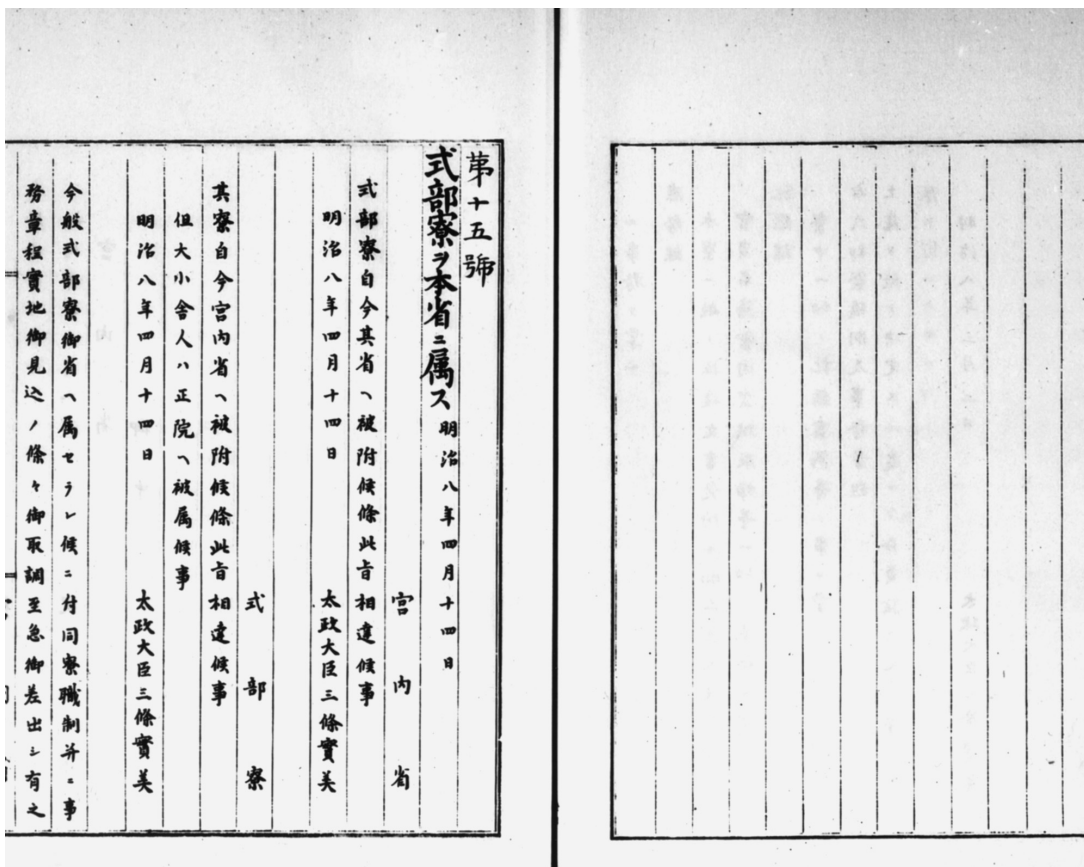 第十五號
式部寮ヲ本省ニ属ス 明治八年四月十四日
宮内省
式部寮自今其省ヘ被附候條此旨相達候事
明治八年四月十四日 太政大臣三條實美
式部寮
其寮自今宮内省ヘ被附候條此旨相達候事
但大小舎人ハ正院ヘ被属候事
明治八年四月十四日 太政大臣三條實美
今般式部寮御省ヘ属セラレ候ニ付同寮職制并ニ事
務章程實地御見込ノ條々御取調至急御差出シ有之